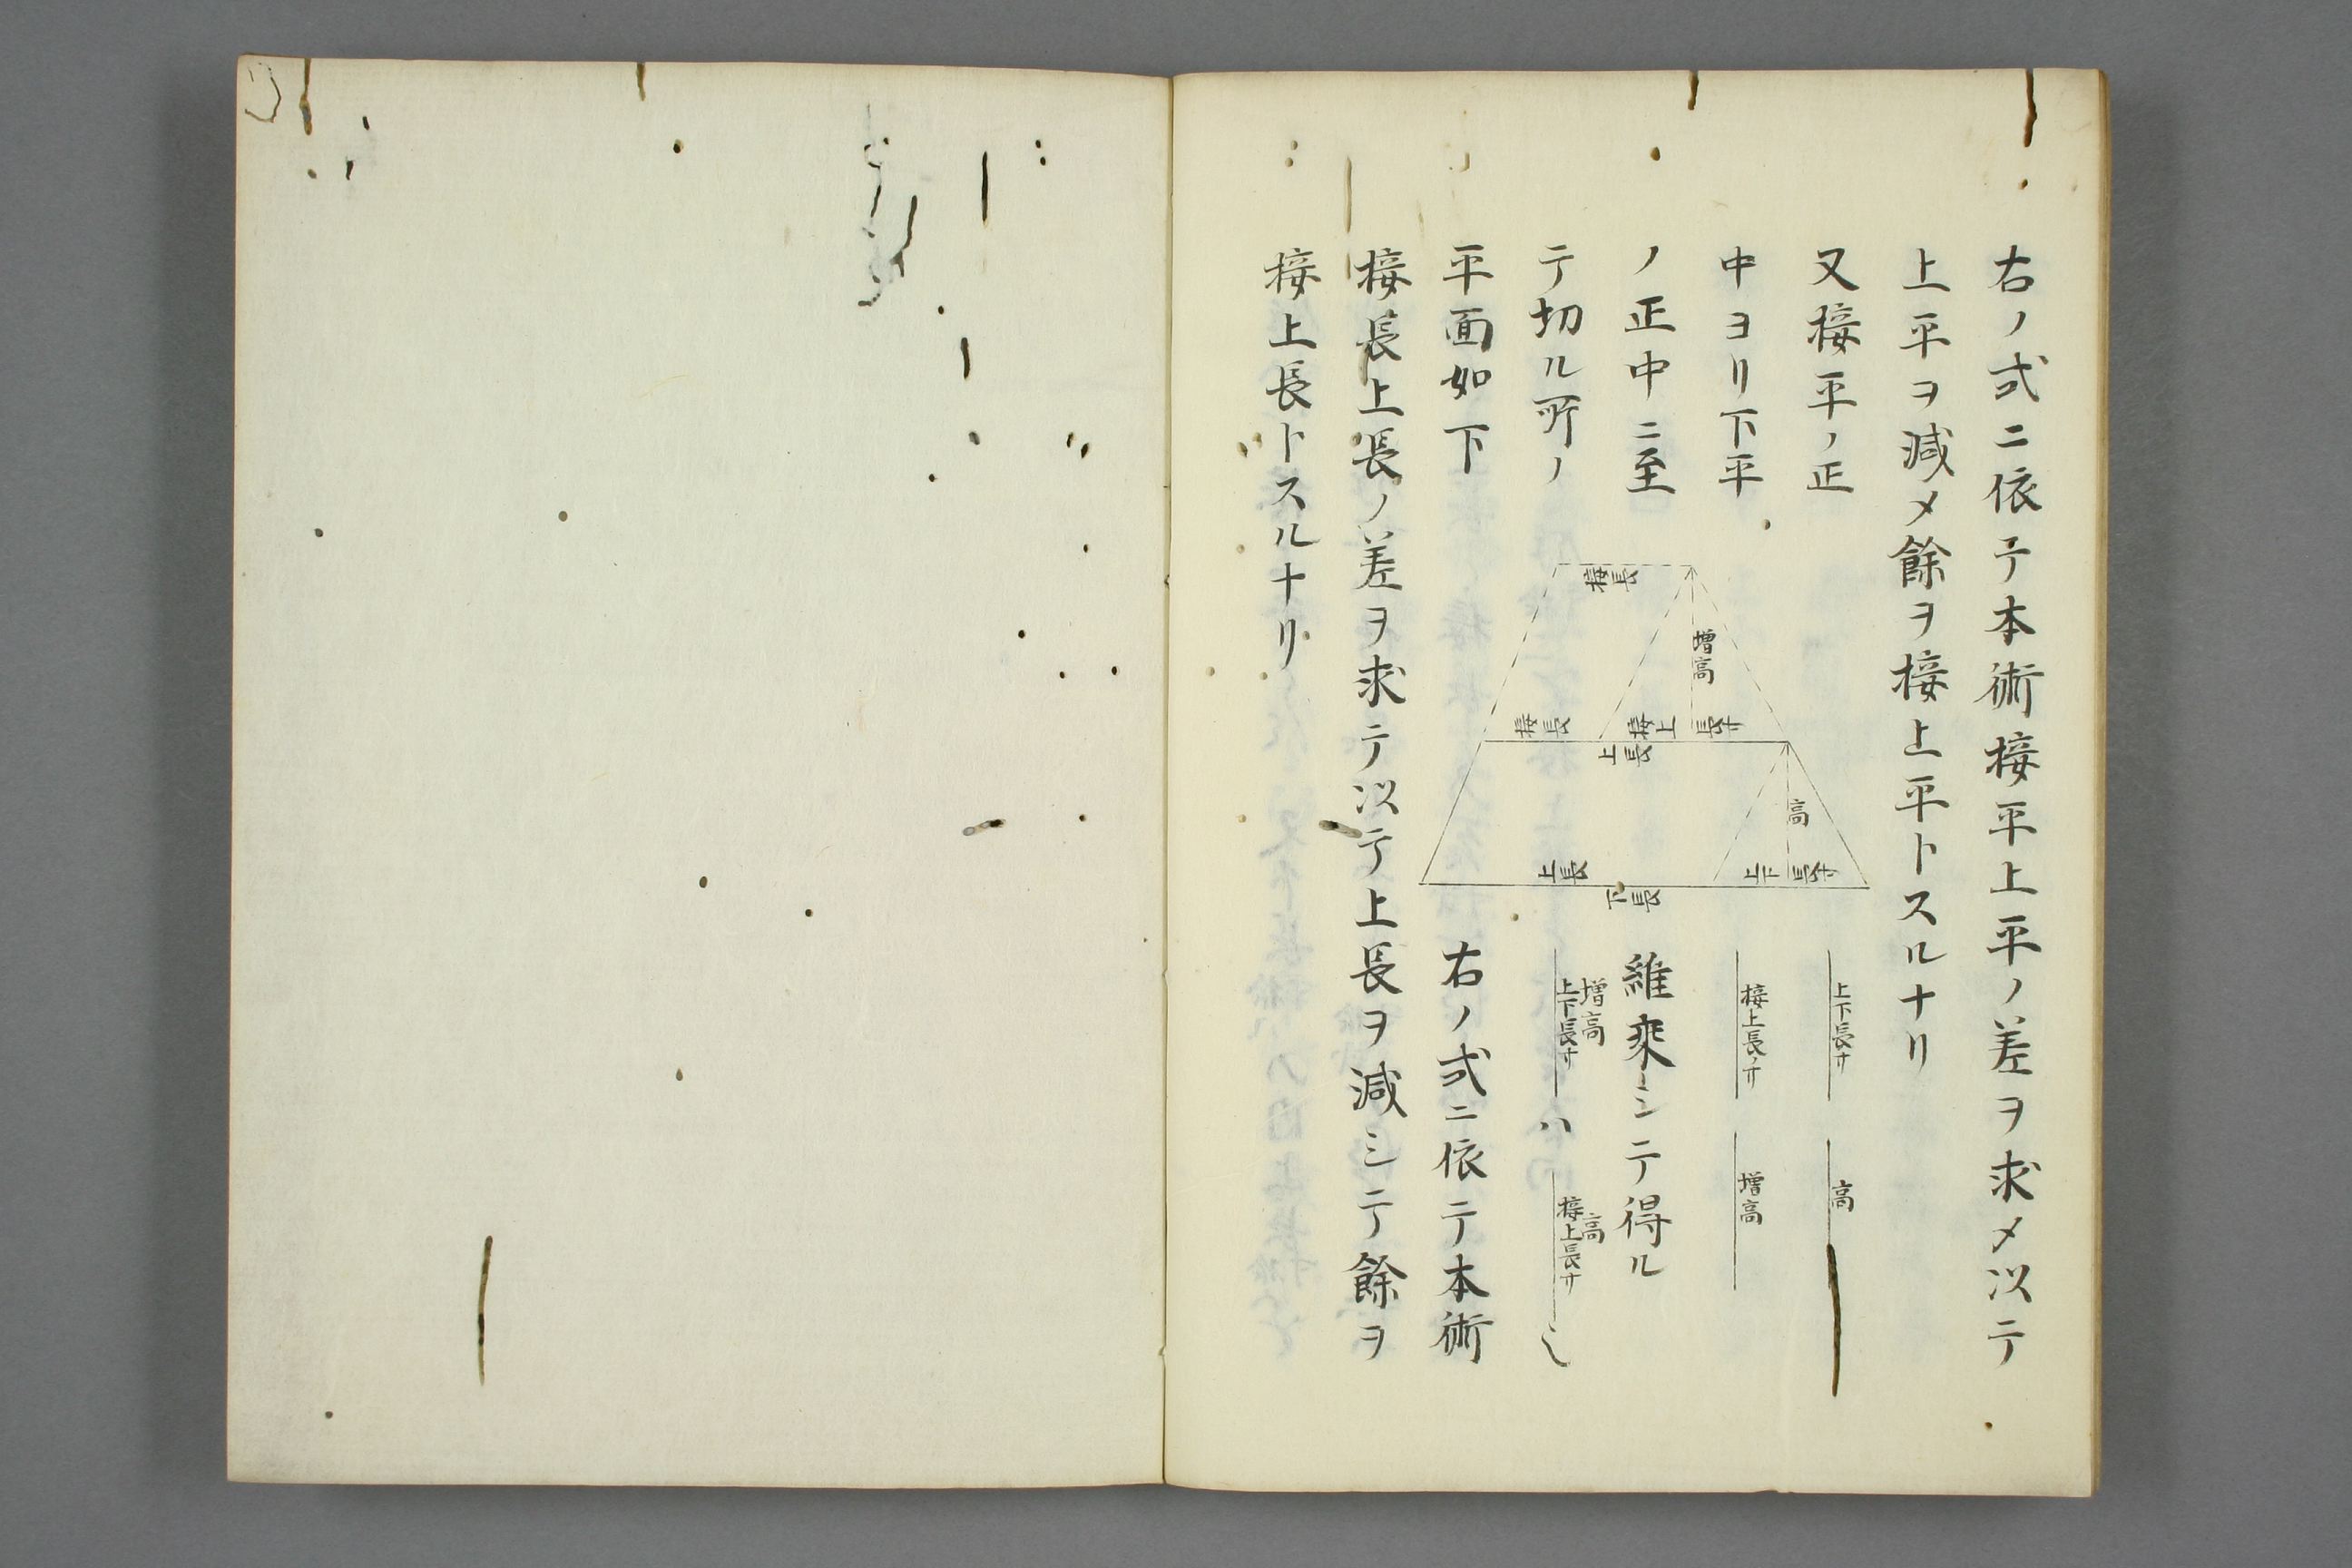 右ノ式ニ依テ本術接平上平ノ差ヲ求メ以テ
上平ヲ減メ餘ヲ接上平トスルナリ
又接平ノ正
中ヨリ下平
ノ正中ニ至
テ切ル所ノ
平面如下
接長
増高
接長
接上
長サ
上長
高
上長
上下
長サ
下長
上下長サ
高
接上長ノサ
増高
維乘シテ得ル
増高
上下長サ
ハ
高
接上長サ
右ノ式ニ依テ本術
接長上長ノ差ヲ求テ以テ上長ヲ減シテ餘ヲ
接上長トスルナリ